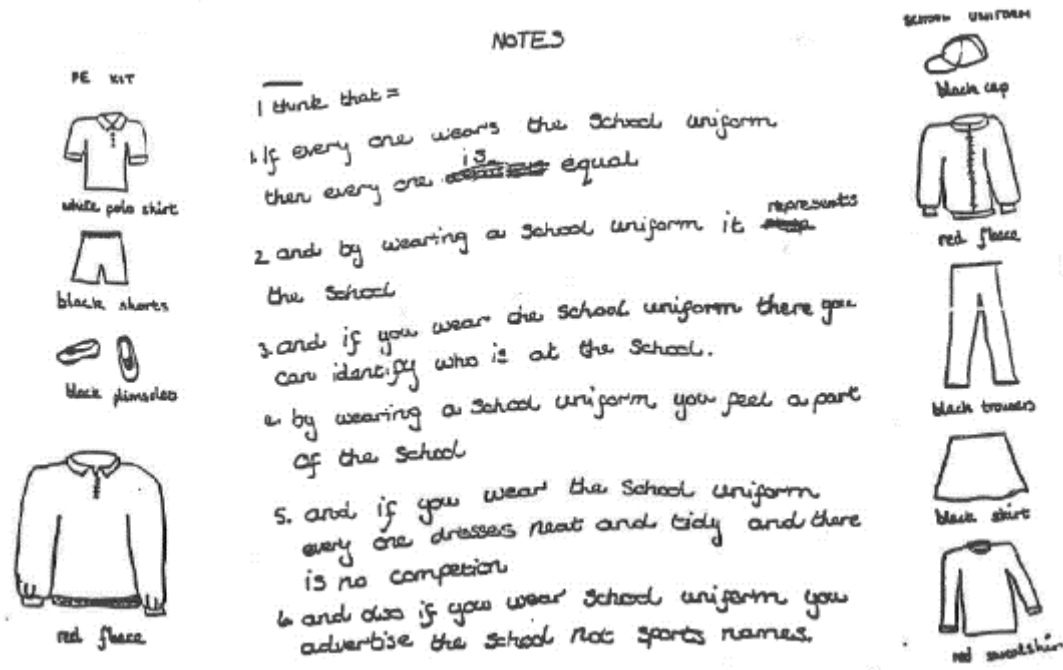 NOTES
PE KIT
white polo shirt
black shorts
black plimsoles
red fleece
I think that =
1. If every one wears the School uniform
then every one is equal
2 and by wearing a School uniform it represents
the School
3. and if you wear the School uniform there you
can identify who is at the School.
4. by wearing a School uniform you feel a part
of the School
5. and if you wear the School uniform
every one dresses neat and tidy and there
is no competion
6. and also if you wear School uniform you
advertise the School not sports names.
SCHOOL UNIFORM
black cap
red fleece
black trousers
black skirt
red sweatshirt